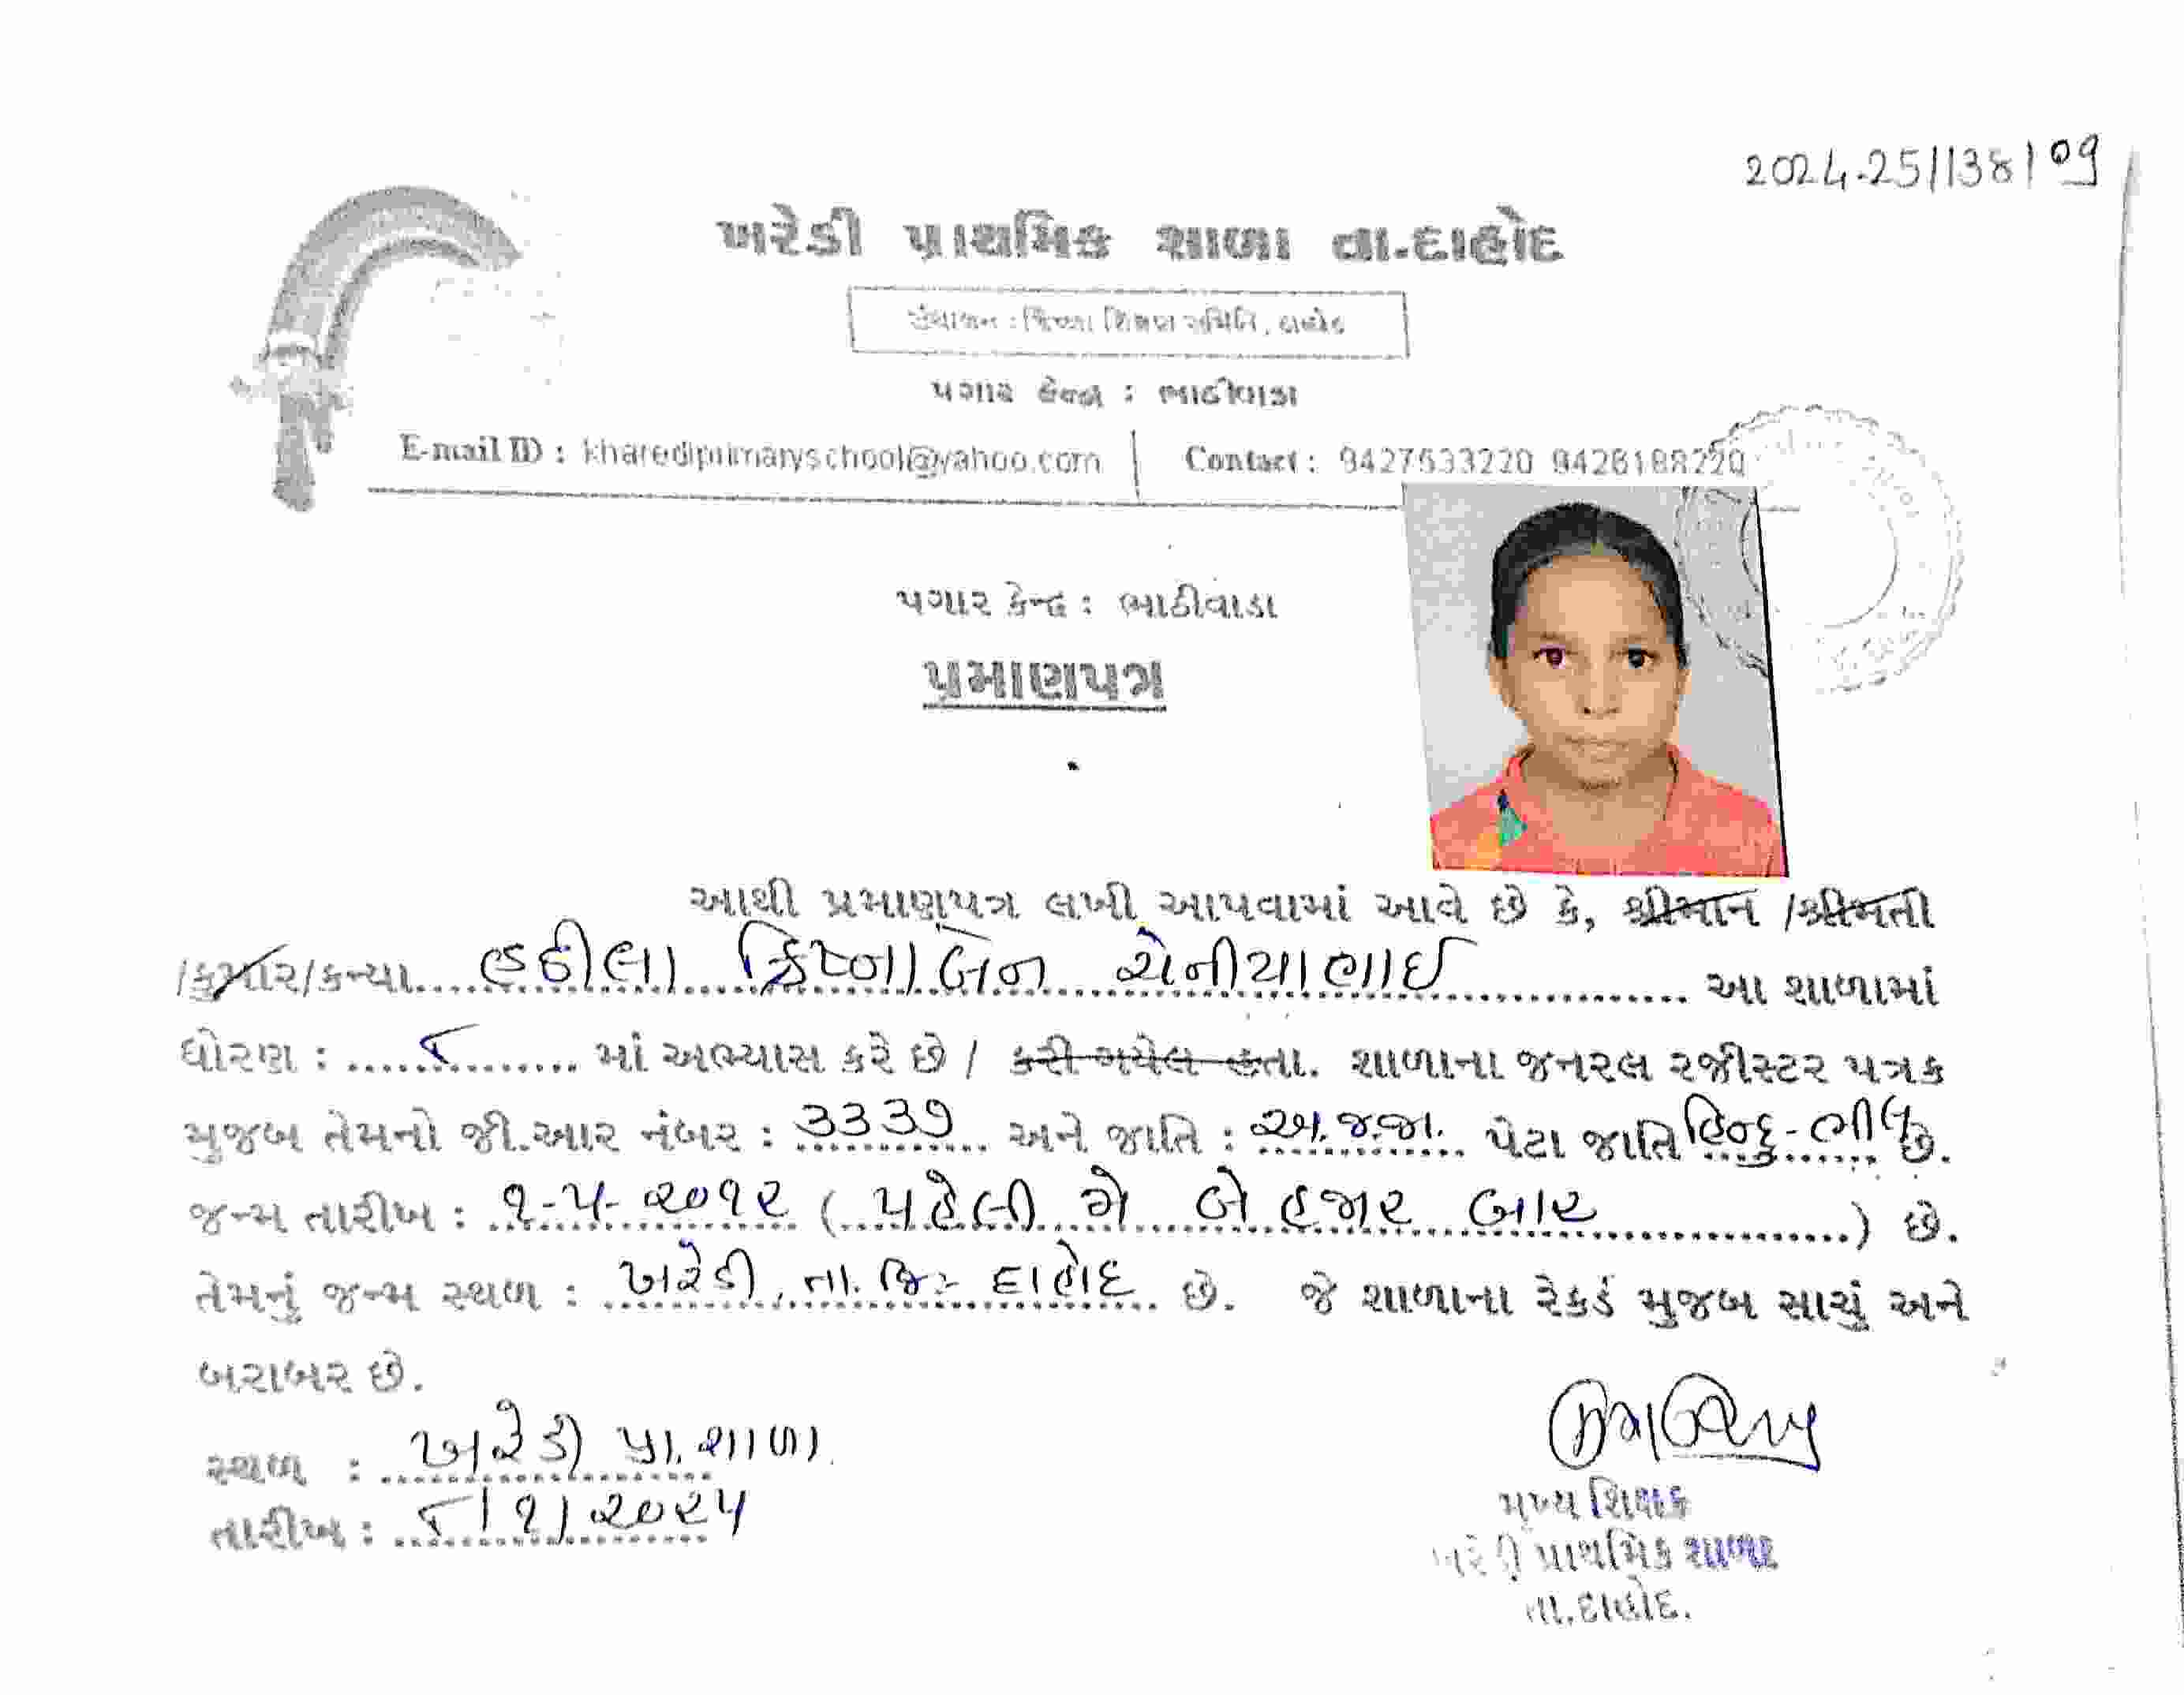 2024-25/138/09
ખરેડી પ્રાથમિક શાળા તા.દાહોદ
સંચાલન : જિલ્લા શિક્ષણ સમિતિ, દાહોદ
પગાર કેન્દ્ર : ભાઠીવાડા
E-mail ID : kharediprimaryschool@yahoo.com | Contact : 9427533220 9426188220
પગાર કેન્દ્ર : ભાઠીવાડા
પ્રમાણપત્ર
આથી પ્રમાણપત્ર લખી આપવામાં આવે છે કે, શ્રીમાન /શ્રીમતી
/કુમાર/કન્યા હઠીલા ક્રિષ્નાબેન સેનીયાભાઈ આ શાળામાં
ધોરણ : ૮ માં અભ્યાસ કરે છે / કરી ગયેલ હતા. શાળાના જનરલ રજીસ્ટર પત્રક
મુજબ તેમનો જી.આર નંબર : ૩૩૩૭ અને જાતિ : અ.જ.જા. પેટા જાતિ હિન્દુ-ભીલ છે.
જન્મ તારીખ : ૧-૫-૨૦૧૨ ( પહેલી મે બે હજાર બાર ) છે.
તેમનું જન્મ સ્થળ : ખરેડી, તા. જિ:- દાહોદ છે. જે શાળાના રેકર્ડ મુજબ સાચું અને
બરાબર છે.
સ્થળ : ખરેડી પ્રા. શાળા.
તારીખ : ૮/૧/૨૦૨૫
મુખ્ય શિક્ષક
ખરેડી પ્રાથમિક શાળા
તા.દાહોદ.